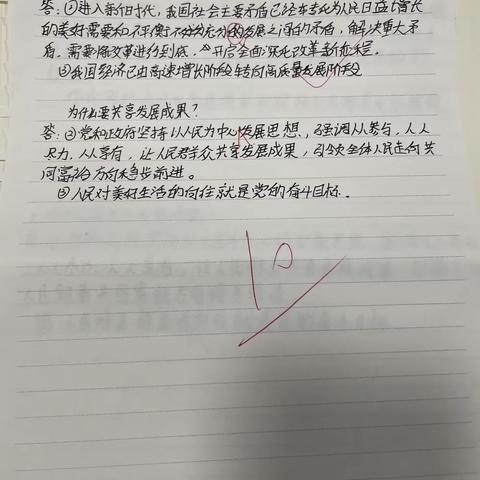 答:①进入新时代,我国社会主要矛盾已经转变为人民日益增长
的美好需要和不平衡不充分的发展之间的矛盾,解决重大矛
盾,需要将改革进行到底,开启全面深化改革新征程。
②我国经济已由高速增长阶段转向高质量发展阶段
为什么要共享发展成果?
答:①党和政府坚持以人民为中心发展思想,强调人人参与,人人
尽力,人人享有,让人民群众共享发展成果,引领全体人民走向共
同富裕方向稳步前进。
②人民对美好生活的向往就是党的奋斗目标.
10